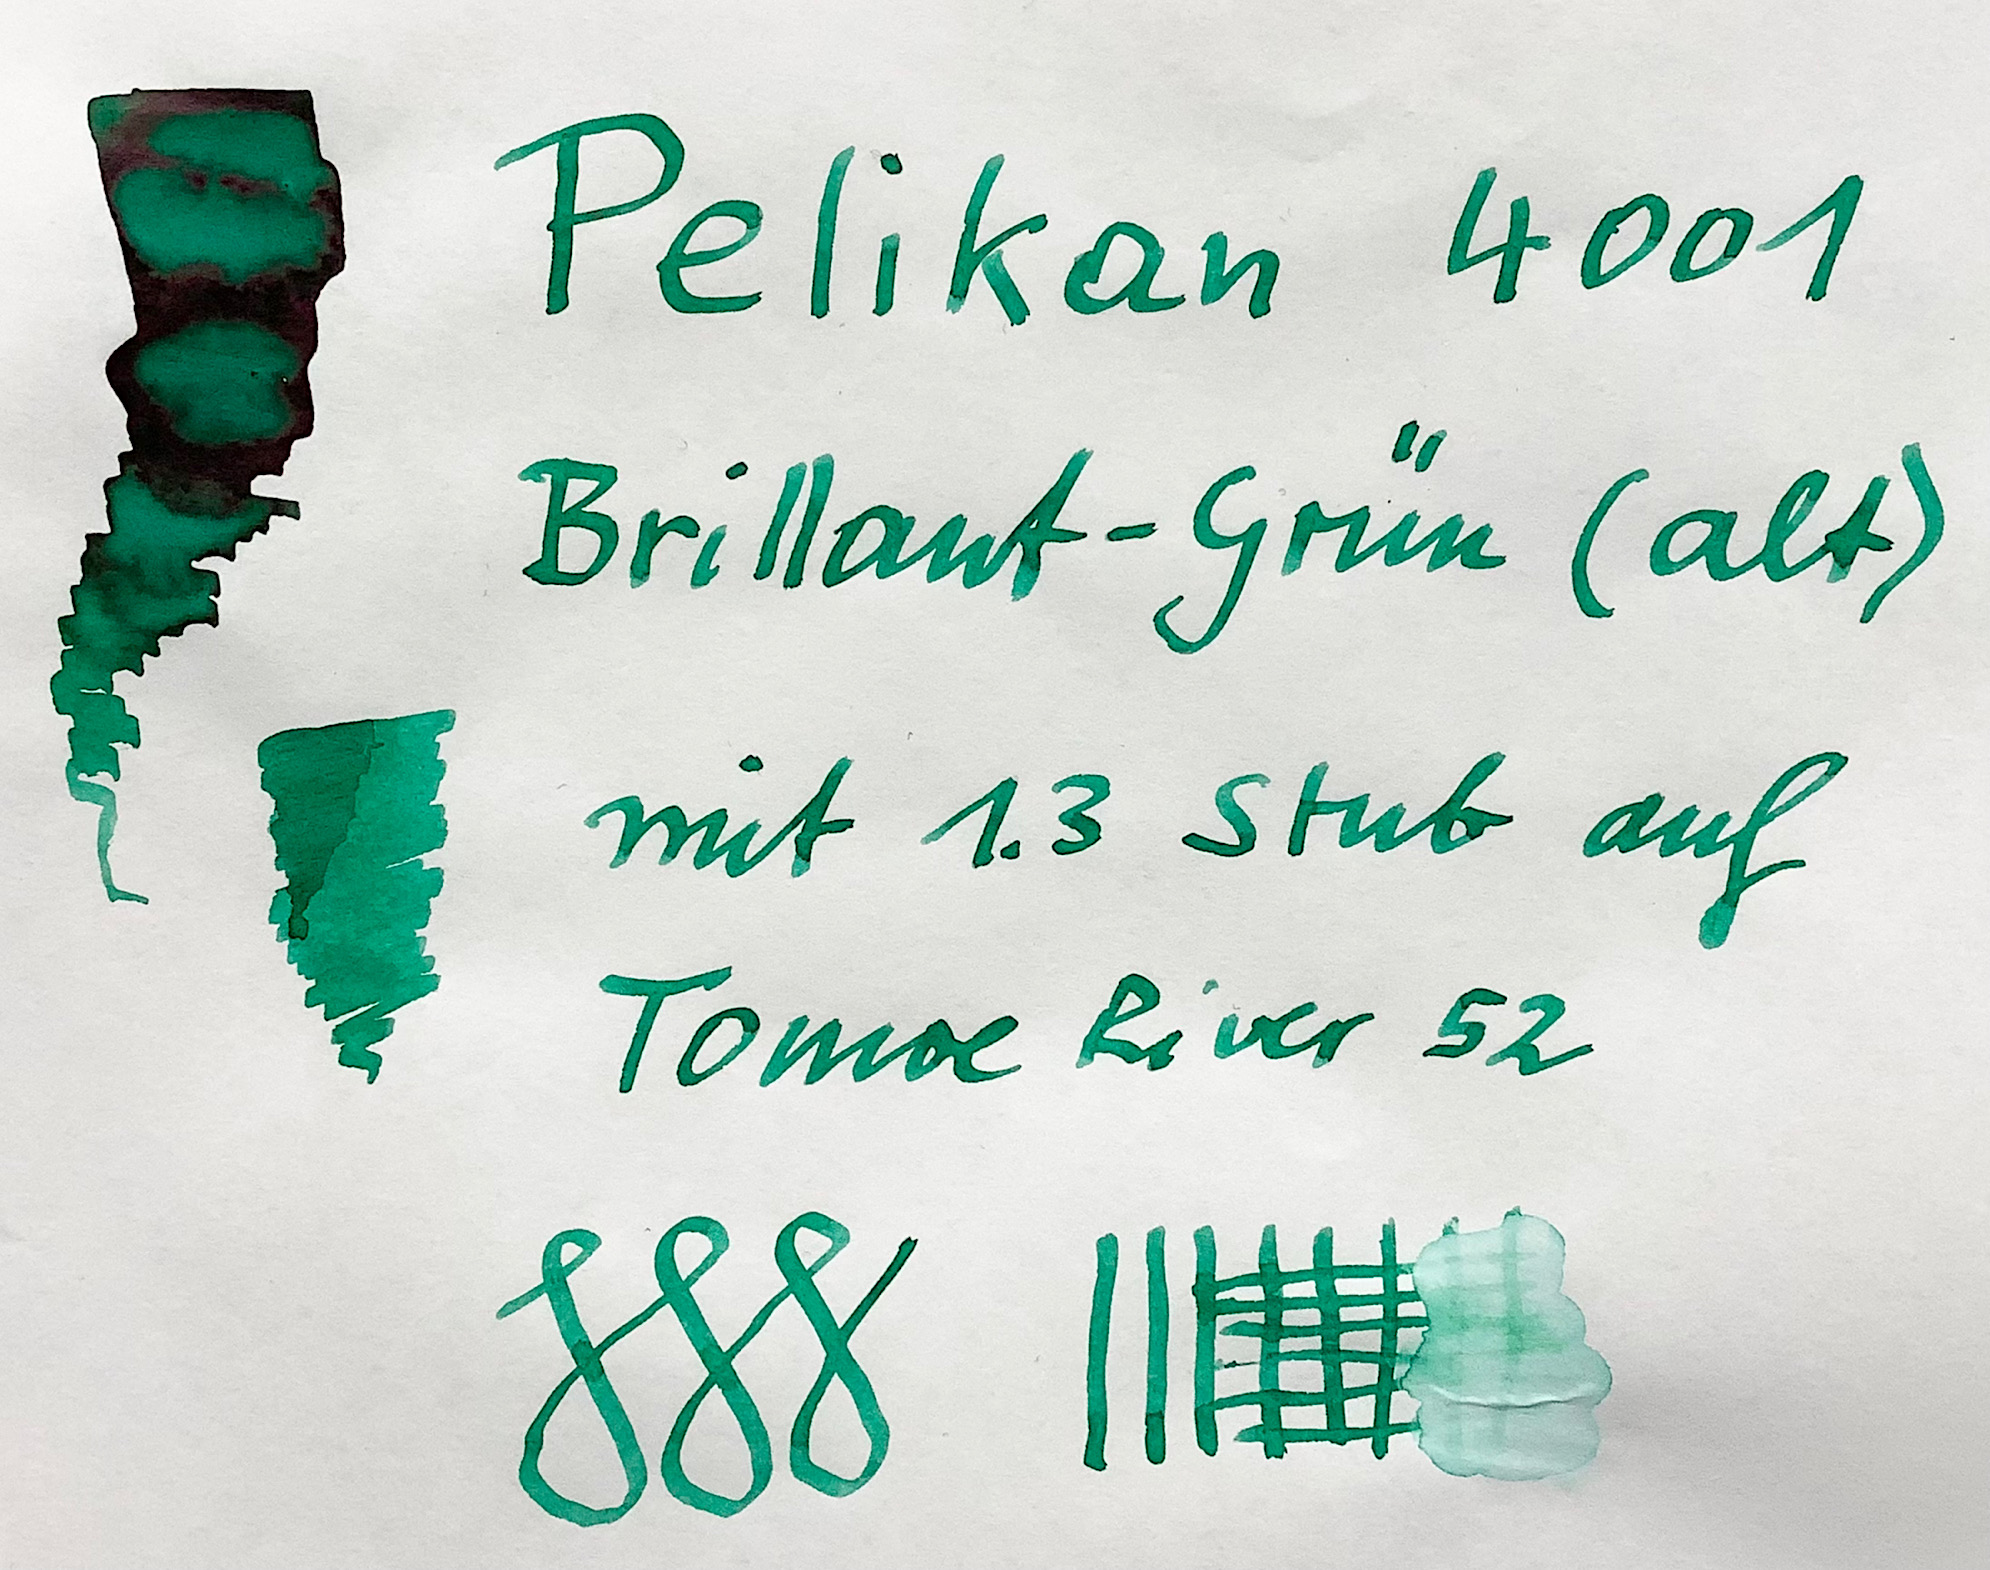 Pelikan 4001
Brillant-Grün (alt)
mit 1.3 Stub auf
Tomoe River 52